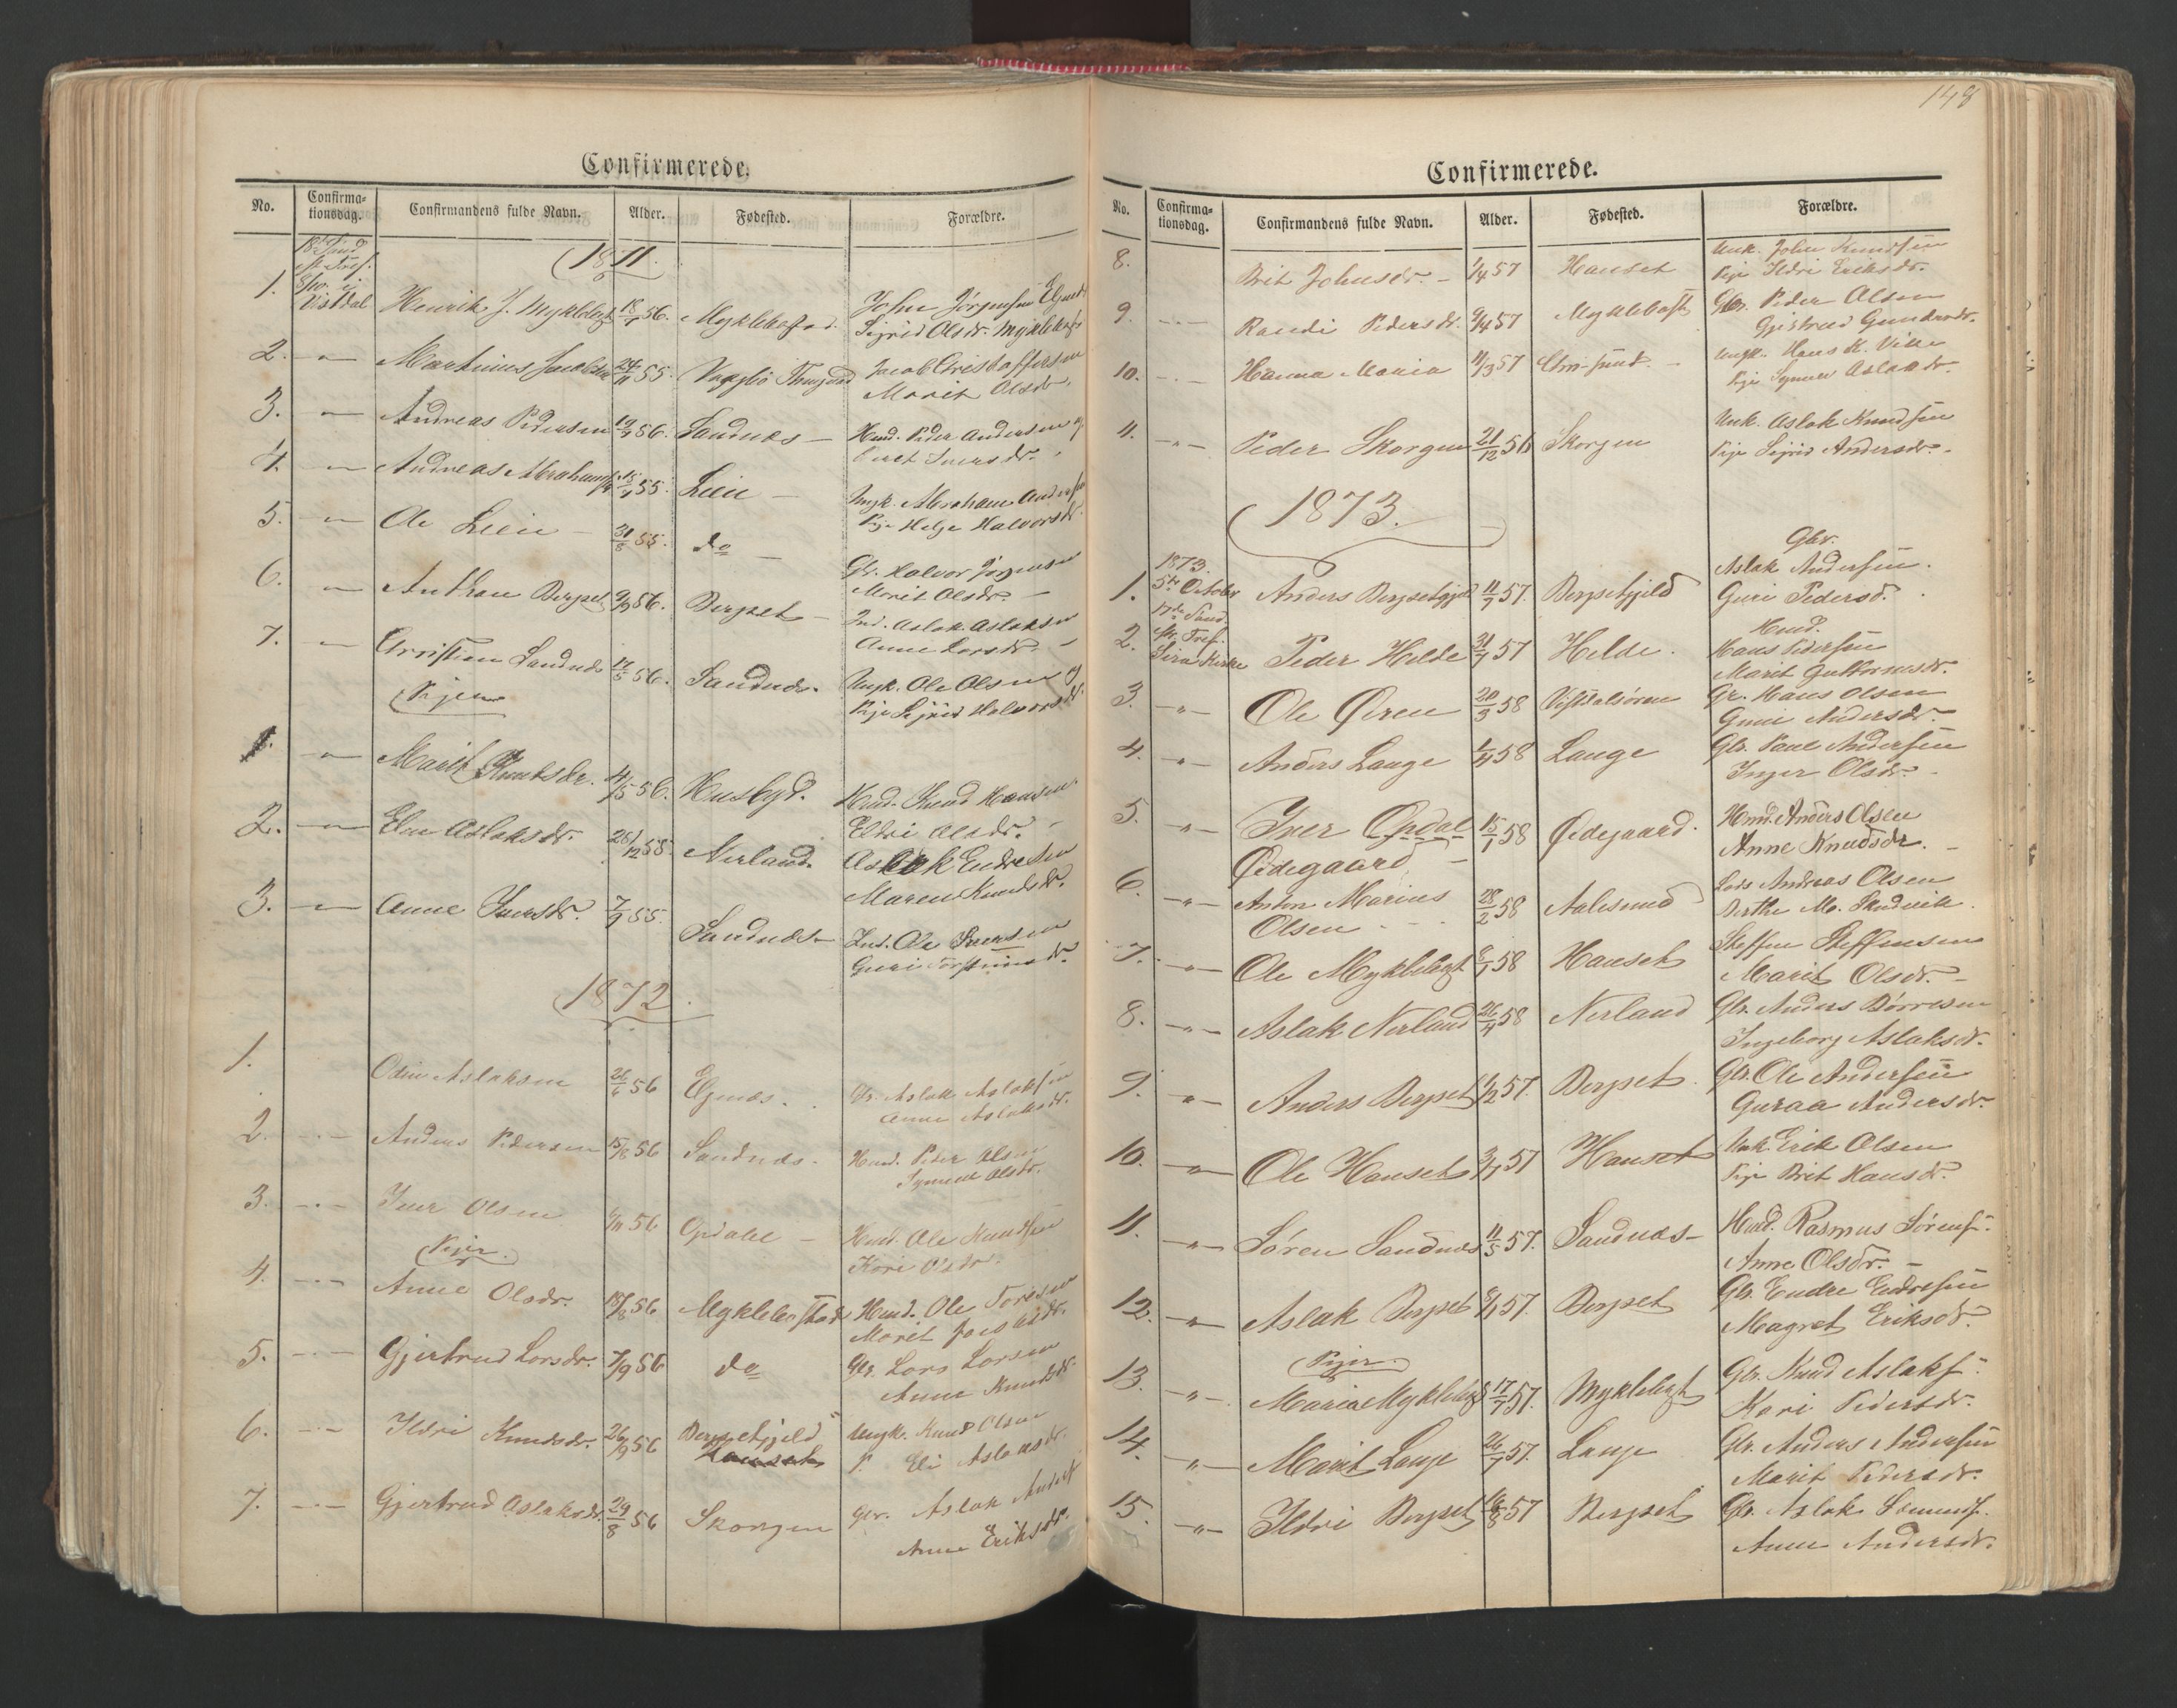 Confirmerede.
No. Confirma-tionsdag. Confirmandens fulde Navn. Alder. Fødested. Forældre.
1871.
18de Sønd
e. Tref.
8/10. i
Vistdal
1. Henrik J. Myklebgt 18/7 56. Myklebostad. John Jørgensen Elgenæs
Sigrid Olsdr. Myklebost
2. Marthinus Jacobsen 24/11 55. Vaagbø Thingvold Jacob Christoffersen
Marit Olsdr.
3. Andreas Pedersen 19/7 56. Sandnæs Hmd. Peder Andersen og
Beret Iversdr.
4. Andreas Abrahams 15/1 55. Lien Ungk. Abraham Anders
Pige Helge Halvorsdr.
5. Ole Lien 31/8 55. do Gbr. Halvor Jørgensen
Marit Olsdr.
6. Anthon Bergset 9/9 56. Bergset Ind. Aslak Aslaksen
Anne Larsdr.
7. Christian Sandnæs 17/5 56. Sandnæs. Ungk. Ole Olsen og
Pige Sigrid Halvorsdr.
Piger
1. Marit Knutsdr. 4/5 56. Husbyd. Hmd. Knud Hansen
Eldri Olsdr.
2. Elen Aslaksdr. 28/12 55. Nerland. Aslak Endresen
Maren Knudsdr.
3. Anne Iversdr. 7/9 55. Sandnæs Ind. Ole Iversen
Guri Torstensdr.
1872.
1. Odin Aslaksen 26/6 56 Elgenæs. Gbr. Aslak Aslaksen
Anne Aslaksdr.
2. Anders Pedersen 15/8 56 Sandnæs. Hmd. Peder Olsen
Synneve Olsdr.
3. Iver Olsen 6/11 56 Opdahl Hmd. Ole Knudsen
Kari Olsdr.
Piger.
4. Anne Olsdr. 18/8 56 Myklebostad Hmd. Ole Toresen
Marit Jacobsdr.
5. Gjertrud Larsdr. 7/9 56 do Gbr. Lars Larsen
Anne Knudsdr.
6. Ildri Knudsdr. 26/9 56 Bergsetfjeld Ungk. Knud Olsen
P. Eli Aslaksdr.
7. Gjertrud Aslaksdr. 29/8 56 Skorgen Gbr. Aslak Anders
Anne Eriksdr.
148
Confirmerede.
No. Confirma-tionsdag. Confirmandens fulde Navn. Alder. Fødested. Forældre.
8. Brit Johnsdr. 1/4 57 Hanset Unk. John Knudsen
Pige Ildri Eriksdr.
9. Randi Pedersdr. 9/4 57 Myklebost Gbr. Peder Olsen
Gjertrud Gundersdr.
10. Hanna Maria 11/3 57 Chr.sund. Ungk. Hans K. Vike
Pige Synnev Aslaksdr.
11. Peder Skorgen 21/12 56 Skorgen Unk. Aslak Knudsen
Pige Sigrid Andersdr.
1873.
1873.
5te October
17de Sønd.
e. Tref.
Eira Kirke
1. Anders Bergsetfjeld 11/7 57. Bergsetfjeld Gbr.
Aslak Andersen.
Guri Pedersd.
2. Peder Helde 31/7 57 Helde. Hmd.
Hans Pedersen
Marit Guttormsdr.
3. Ole Øren 20/3 58 Vistdalsøren Gr. Hans Olsen
Guni Andersdr.
4. Anders Lange 1/4 58 Lange Gbr. Paul Andersen
Inger Olsdr.
5. Iver Opdal 15/1 58 Ødegaard. Hmd. Anders Olsen
Ødegaard Anne Knudsdr.
6. Anton Marius 28/2 58 Aalesund Lods Andreas Olsen
Olsen Berthe M. Skudvik.
7. Ole Myklebgt 8/1 58 Hanset Steffen Steffensen
Marit Olsdr.
8. Aslak Nerland 26/4 58 Nerland Gbr. Anders Børresen
Ingeborg Aslaksdr.
9. Anders Bergset 1/12 57. Bergset. Gbr. Ole Andersen
Guraa Andersdr.
10. Ole Hanset 3/7 57 Hanset Unk. Erik Olsen
Pige Brit Hansdr.
11. Søren Sandnæs 11/5 57. Sandnæs Hmd. Rasmus Sørens.
Anne Olsdr.
12. Aslak Bergset 8/1 57. Bergset Gbr. Endre Endresen
Magret Eriksdr.
Piger.
13. Maria Myklebgt 17/7 57. Myklebgt Gbr. Knud Aslaks.
Kari Pedersdr.
14. Marit Lange 26/7 57. Lange Gbr. Anders Andersen
Marit Pedersdr.
15. Ildri Bergset 18/8 57 Bergset Gbr. Aslak Sæmunds.
Anne Andersdr.